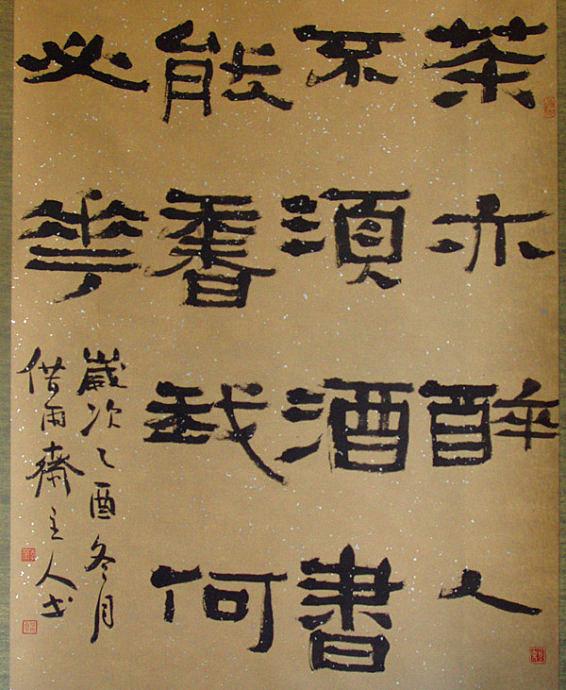 茶亦醉人
不須酒書
能香我何
必花
歲次乙酉冬月
借雨齋主人书